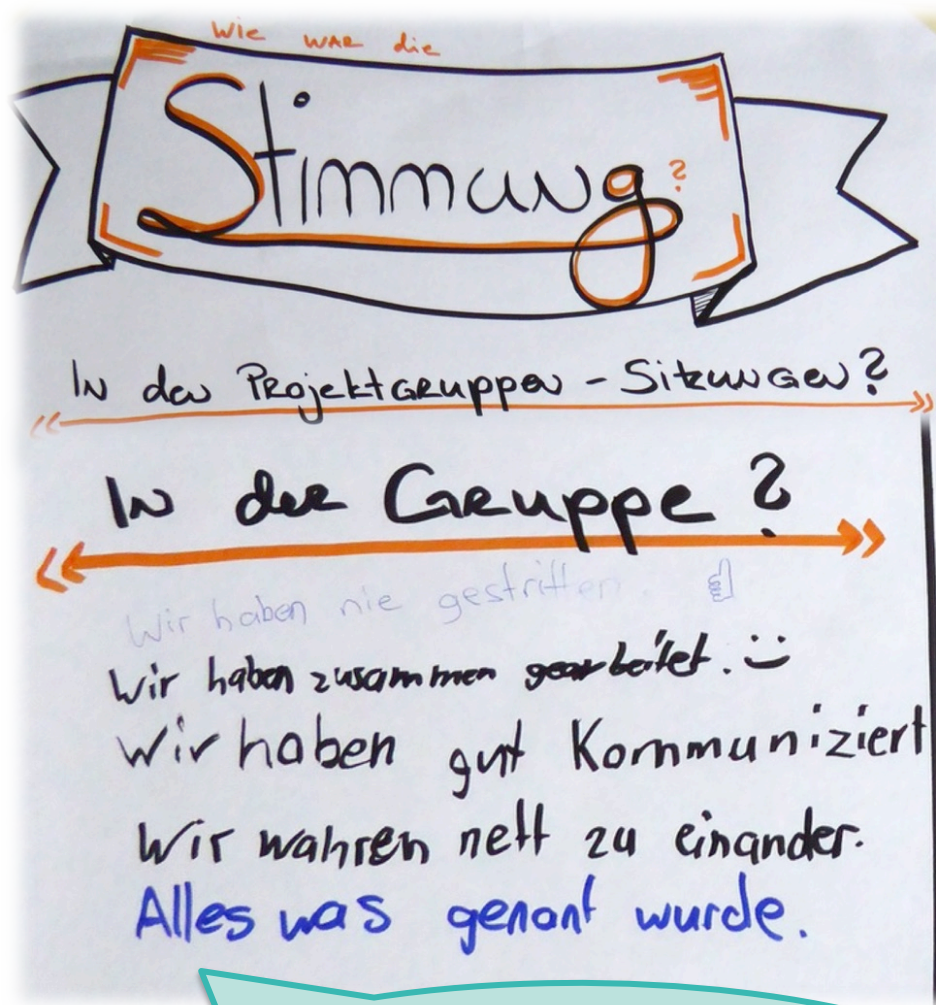 Wie war die
Stimmung?
In den Projektgruppen - Sitzungen?
In der Gruppe?
Wir haben nie gestritten.
Wir haben zusammen gearbeitet. :)
Wir haben gut Kommuniziert
Wir wahren nett zu einander.
Alles was genant wurde.